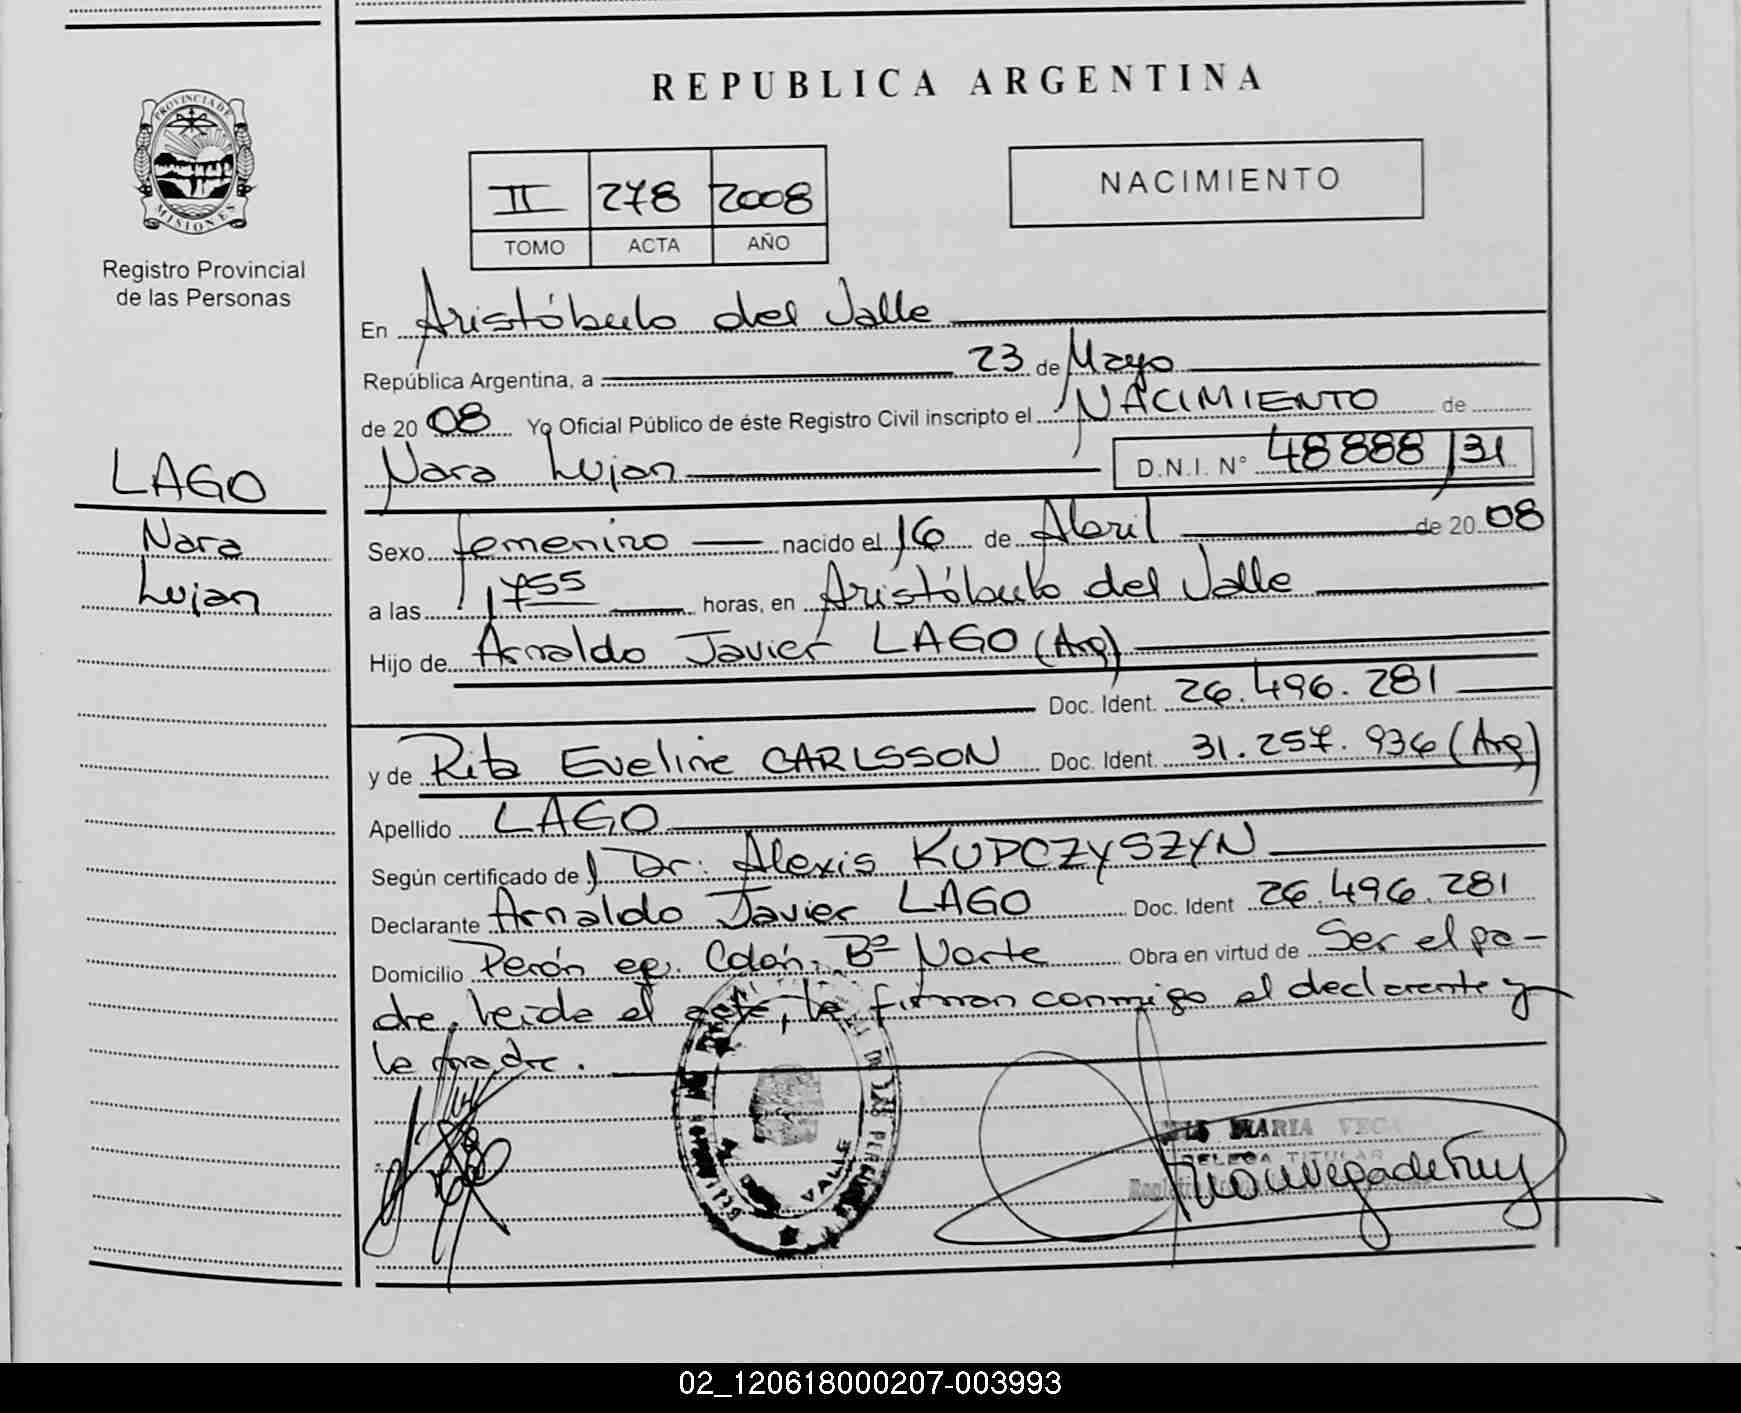 REPUBLICA ARGENTINA
PROVINCIA DE
MISIONES
Registro Provincial
de las Personas
II 278 2008
TOMO ACTA AÑO
NACIMIENTO
En Aristóbulo del Valle
República Argentina, a 23 de Mayo
de 2008 Yo Oficial Público de éste Registro Civil inscripto el NACIMIENTO de
Nara Lujan D.N.I. N° 48888131
LAGO
Nara
Lujan
Sexo femenino nacido el 16 de Abril de 2008
a las 1755 horas, en Aristóbulo del Valle
Hijo de Arnaldo Javier LAGO (Arg)
Doc. Ident. 26.496.281
y de Rita Eveline CARLSSON Doc. Ident. 31.257.936 (Arg)
Apellido LAGO
Según certificado de Dr: Alexis KUPCZYSZYN
Declarante Arnaldo Javier LAGO Doc. Ident 26.496.281
Domicilio Perón eq. Colón, Bº Norte Obra en virtud de Ser el pa-
dre, leída el acta, la firman conmigo el declarante y
la madre.
VALLE
MARIA VEGA
TITULAR
02_120618000207-003993